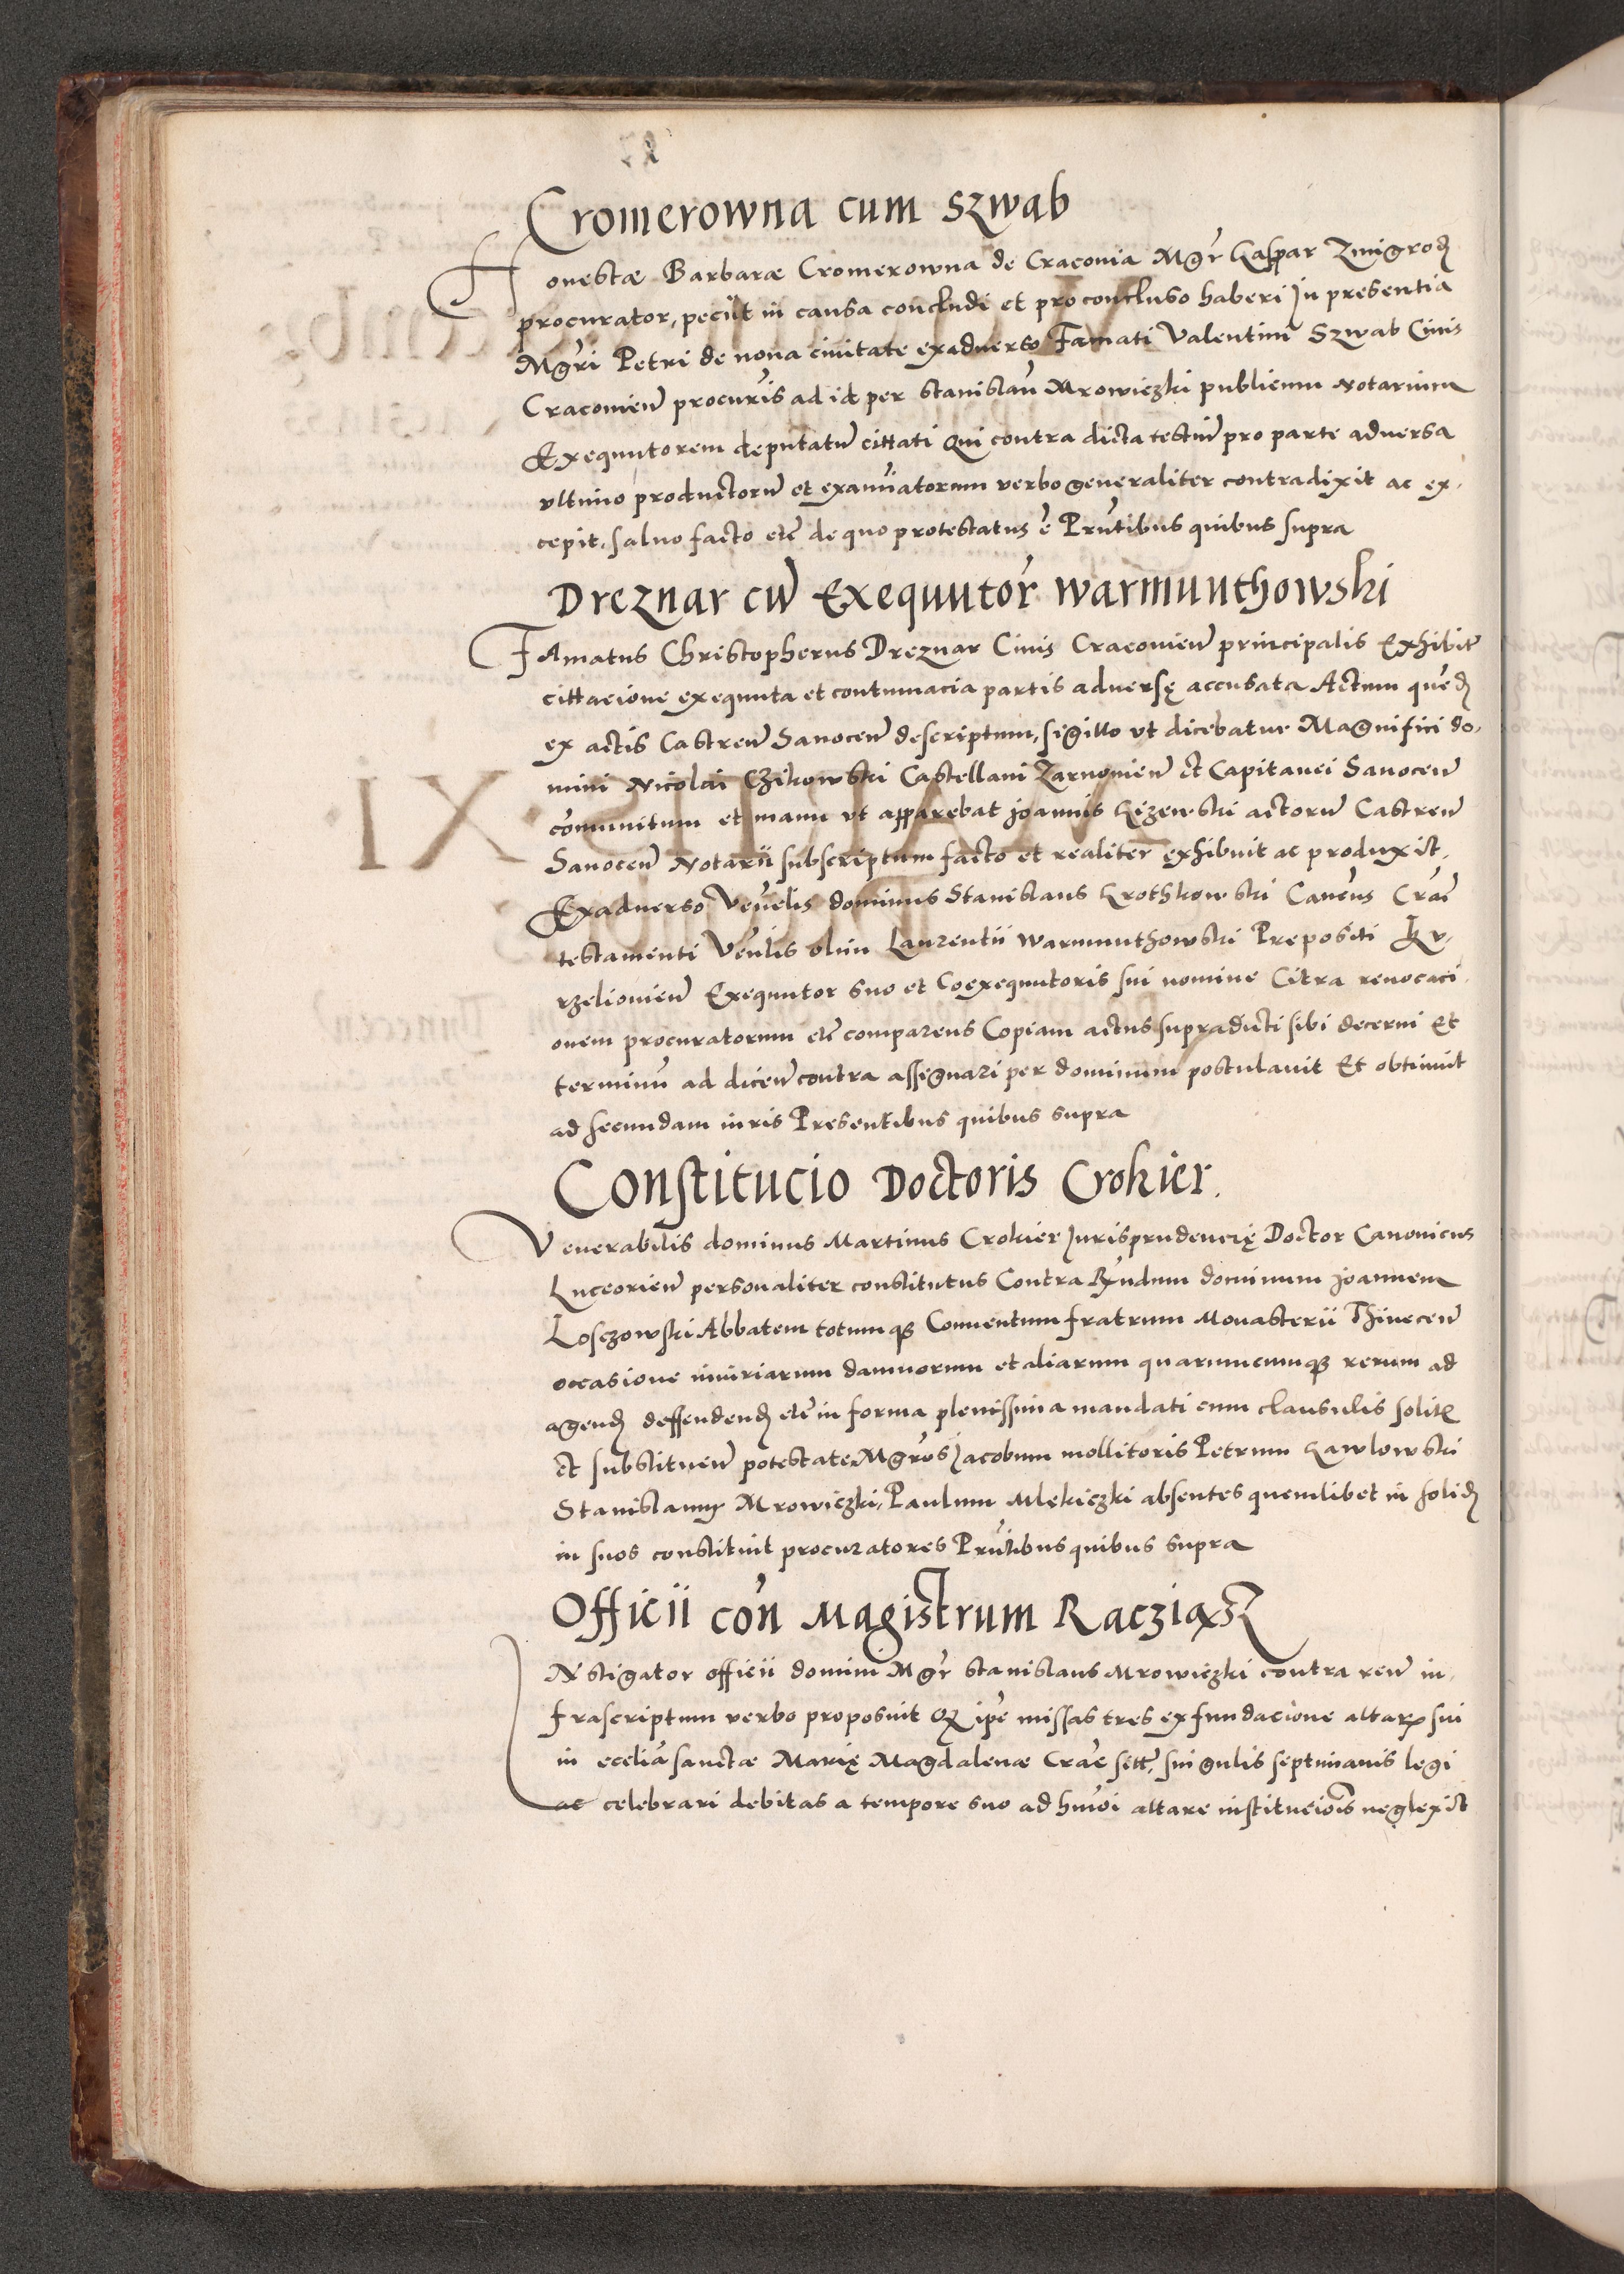 Cromerowna cum Szwab
Honestæ Barbaræ Cromerowna de Cracovia Mgr̃ Caspar Zmigrod
procurator, peciit in causa concludi et pro concluso haberi In presentia
Mgr̃i Petri de nova civitate exadverso Famati Valentini Szwab Civis
Cracovien̄ procur̃is ad id per Stanislaū Mrowiczki publicum Notarium
Exequutorem deputatū cittati Qui contra dicta testiū pro parte adversa
ultimo productorū et examinatorum verbo generaliter contradixit ac ex-
cepit, salvo facto etc̃ de quo protestatus ē Prñtibus quibus supra
Dreznar cū Exequutor̃ Warmunthowski
Famatus Christopherus Dreznar Civis Cracovien̄ principalis Exhibita
cittacione exequuta et contumacia partis adversę accusata Actum quēd
ex actis Castren̄ Sanocen̄ descriptum, sigillo ut dicebatur Magnifici do-
mini Nicolai Czikowski Castellani Zarnovien̄ et Capitanei Sanocen̄
cōmunitum et manu ut apparebat Joannis Kizewski actorū Castren̄
Sanocen̄ Notarii subscriptum facto et realiter exhibuit ac produxit,
Exadverso Veñelis dominus Stanislaus Krothkowski Caneus Crac̃
testamenti Veñlis olim Laurentii Warmunthowski Prepositi Ku-
rzelovien̄ Exequutor suo et Coexequutoris sui nomine Citra revocaci-
onem procuratorum etc̃ comparens Copiam actus supradicti sibi decerni Et
terminū ad dicen̄ contra assignari per dominum postulavit Et obtinuit
ad secundam iuris Presentibus quibus supra
Constitucio Doctoris Crokier.
Venerabilis dominus Martinus Crokier Jurisprudencię Doctor Canonicus
Luceorien̄ personaliter constitutus Contra Rñdum dominum Joannem
Losczowski Abbatem totumqꝫ Conventum fratrum Monasterii Thinecen̄
occasione iniuriarum damnorum et aliarum quarumcumqꝫ rerum ad
agend deffendend etc̃ in forma plenissima mandati cum clausulis solitꝭ
et substituen̄ potestate Mgr̃os Jacobum Mollitoris Petrum Kawlowski
Stanislaum Mrowiczki, Paulum Mlekiczki absentes quemlibet in solid
in suos constituit procuratores Prñtibus quibus supra
Officii cōn Magistrum Racziąsz
INstigator officii domini Mgr̃ Stanislaus Mrowiczki contra reū in-
frascriptum verbo proposuit Qꝫ ip̃e missas tres ex fundacione altarꝭ sui
in ecclia sanctæ Marię Magdalenæ Crac̃ sitt̃, singulis septimanis legi
ac celebrari debitas a tempore suo ad hm̃oi altare institucioīs neglexit